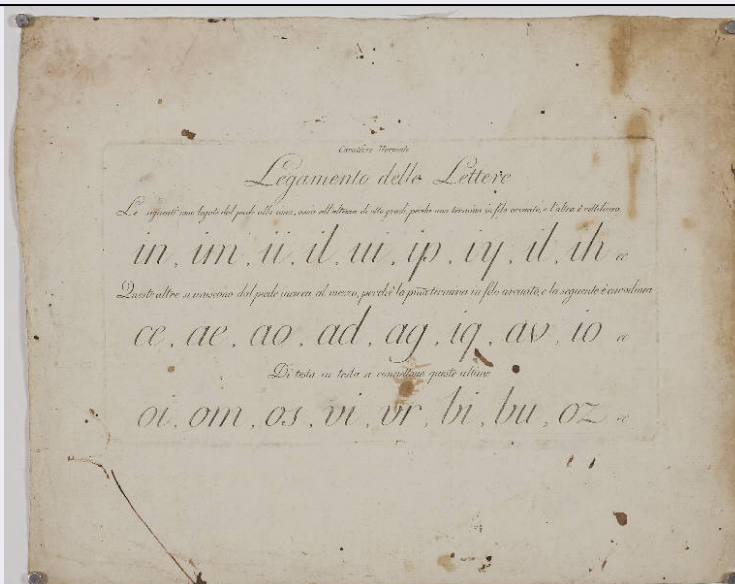 Carattere Normante
Legamento delle Lettere
Le seguenti sono legate dal piede alla cima, ossia all'altezza di otto gradi, perche una termina in filo arcuato, e l'altra è rettilinea
in, im, ii, il, ui, ip, iy, il, ih ec
Queste altre si uniscono dal piede incirca al mezzo, perchè la prima termina in filo arcuato, e la seguente è curvilinea
ce, ae, ao, ad, ag, iq, av, io ec
Di testa in testa si connettono queste ultime
oi, om, os, vi, vr, bi, bu, oz ec